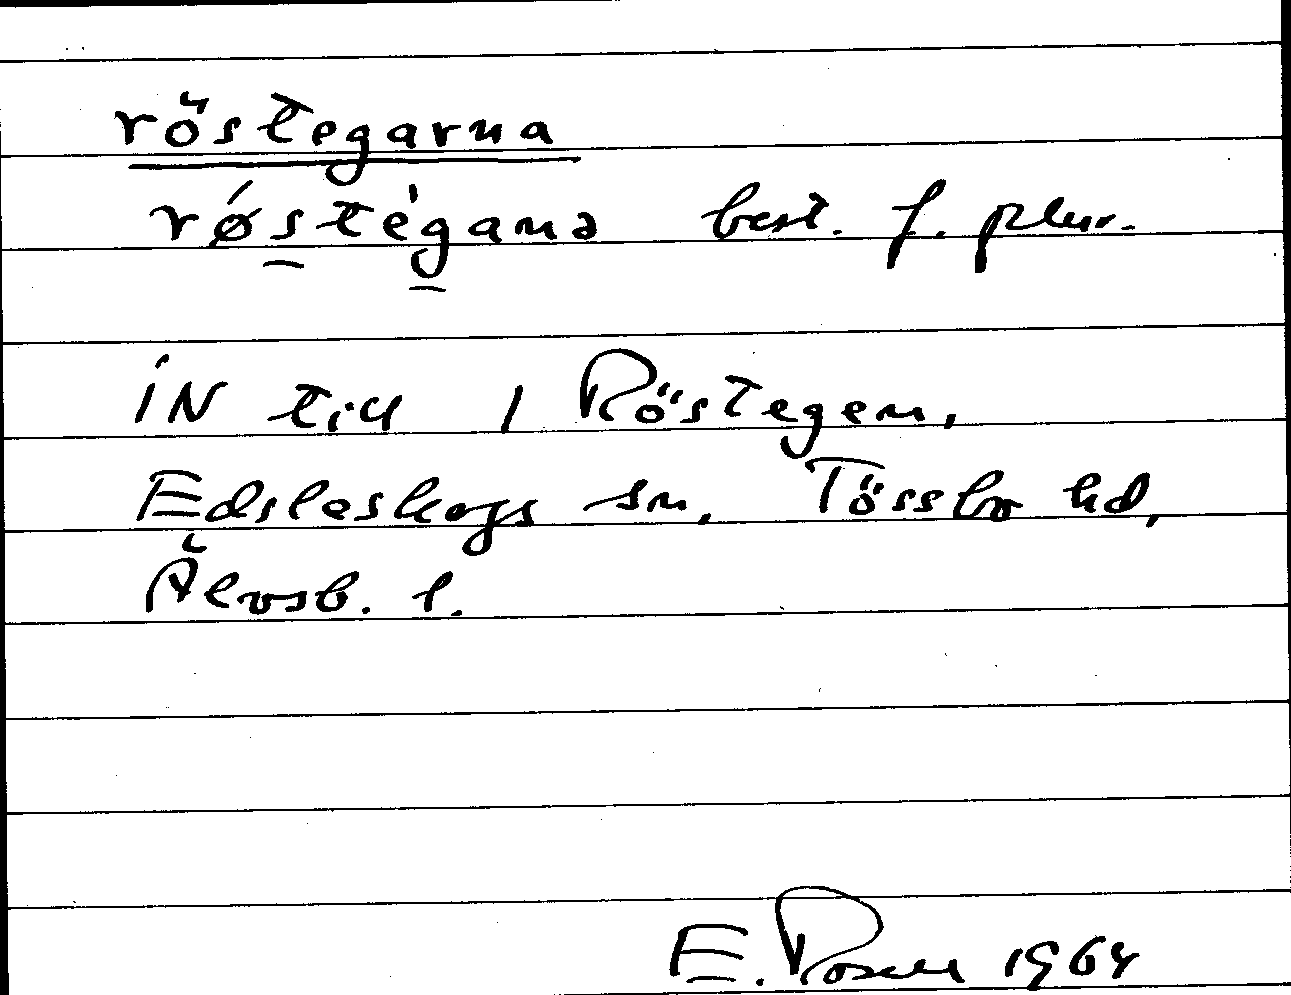 röstegarna
røstégana best. f. plur.
iN till 1 Röstegen,
Edsleskogs sn, Tössbo hd,
Älvsb. l.
E. Rosell 1964